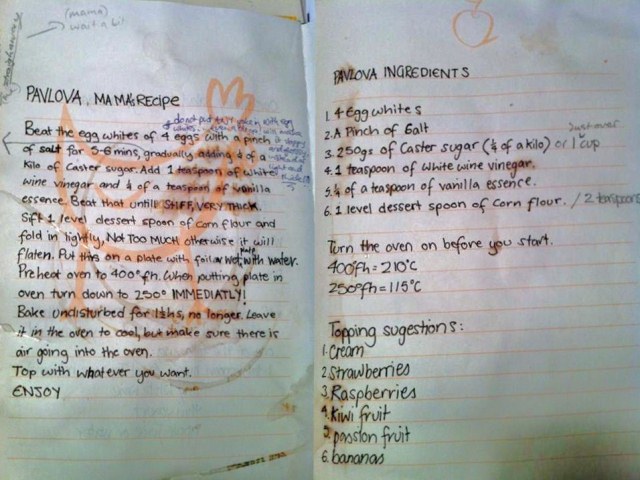 (mama)
wait a bit
PAVLOVA. MAMA'S RECIPE
Beat the egg whites of 4 eggs with a pinch
of salt for 5-6 mins, gradually adding ¼ of a
kilo of Caster sugar. Add 1 teaspoon of white
wine vinegar and ¼ of a teaspoon of vanilla
essence. Beat that untill STIFF, VERY THICK.
Sift 1 level dessert spoon of corn flour and
fold in lightly, NOT TOO MUCH otherwise it will
flaten. Put this on a plate with foil with water.
Preheat oven to 400° fh. When putting plate in
oven turn down to 250° IMMEDIATLY!
Bake undisturbed for 1½ hs, no longer. Leave
it in the oven to cool, but make sure there is
air going into the oven.
Top with whatever you want.
ENJOY
PAVLOVA INGREDIENTS
1. 4 egg whites
2. A Pinch of Salt
3. 250gs of Caster sugar (¼ of a kilo) or 1 cup
just over
4. 1 teaspoon of white wine vinegar.
5. ¼ of a teaspoon of vanilla essence.
6. 1 level dessert spoon of corn flour. / 2 teaspoons
Turn the oven on before you start.
400°fh = 210°C
250°fh = 115°C
Topping sugestions:
1. Cream
2. Strawberries
3. Raspberries
4. Kiwi fruit
passion fruit
6. bananas